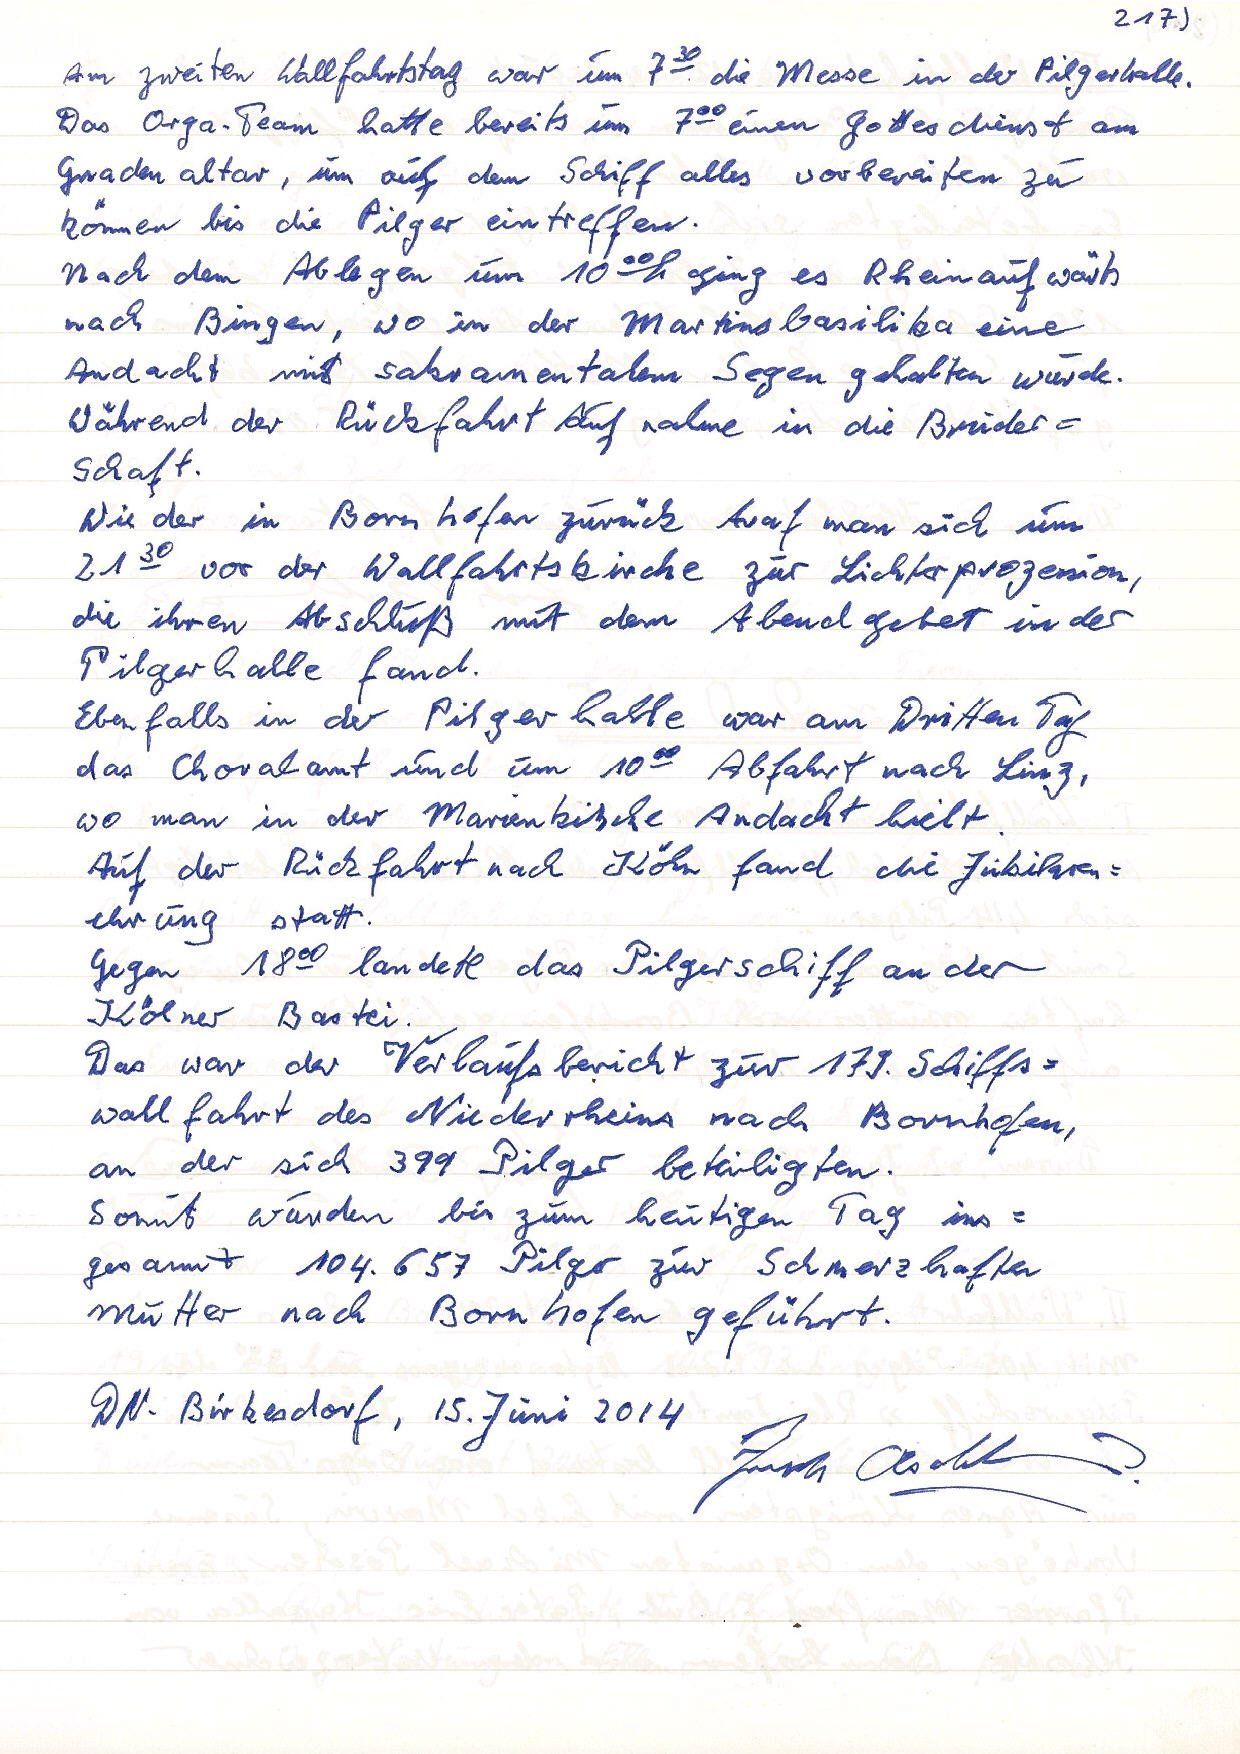 217)
Am zweiten Wallfahrtstag war um 7³⁰ die Messe in der Pilgerhalle.
Das Orga-Team hatte bereits um 7⁰⁰ einen Gottesdienst am
Gnadenaltar, um auf dem Schiff alles vorbereiten zu
können bis die Pilger eintreffen.
Nach dem Ablegen um 10⁰⁰h ging es Rheinaufwärts
nach Bingen, wo in der Martinsbasilika eine
Andacht mit sakramentalem Segen gehalten wurde.
Während der Rückfahrt Aufnahme in die Bruder=
schaft.
Wieder in Bornhofen zurück traf man sich um
21³⁰ vor der Wallfahrtskirche zur Lichterprozession,
die ihren Abschluß mit dem Abendgebet in der
Pilgerhalle fand.
Ebenfalls in der Pilgerhalle war am Dritten Tag
das Choralamt und um 10⁰⁰ Abfahrt nach Linz,
wo man in der Marienkirche Andacht hielt.
Auf der Rückfahrt nach Köln fand die Jubilaren=
ehrung statt.
Gegen 18⁰⁰ landete das Pilgerschiff an der
Kölner Bastei.
Das war der Verlaufsbericht zur 179. Schiffs=
wallfahrt des Niederrheins nach Bornhofen,
an der sich 399 Pilger beteiligten.
Somit wurden bis zum heutigen Tag ins=
gesamt 104.657 Pilger zur Schmerzhaften
Mutter nach Bornhofen geführt.
DN-Birkesdorf, 15. Juni 2014